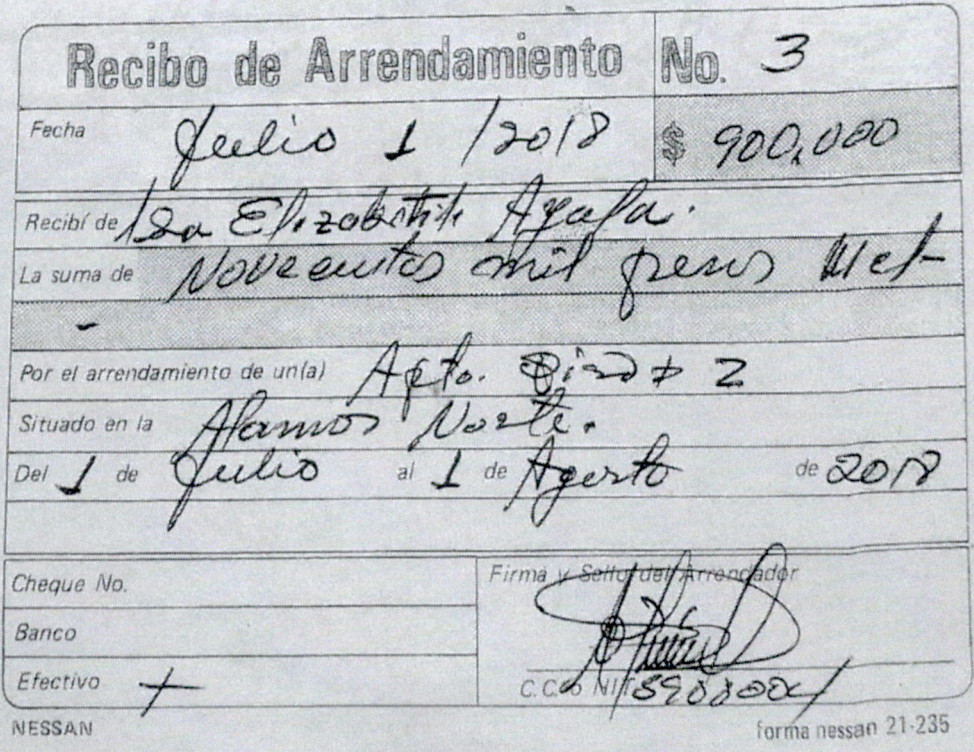 Recibo de Arrendamiento No. 3
Fecha Julio 1 /2018 $ 900,000
Recibí de Elizabeth Ayala.
La suma de Novecientos mil pesos Mct-
-
Por el arrendamiento de un(a) Apto. Piso # 2
Situado en la Alamos Norte.
Del 1 de Julio al 1 de Agosto de 2018
Cheque No.
Firma y Sello del Arrendador
Banco
Efectivo +
C.C. o NIT
NESSAN forma nessan 21-235